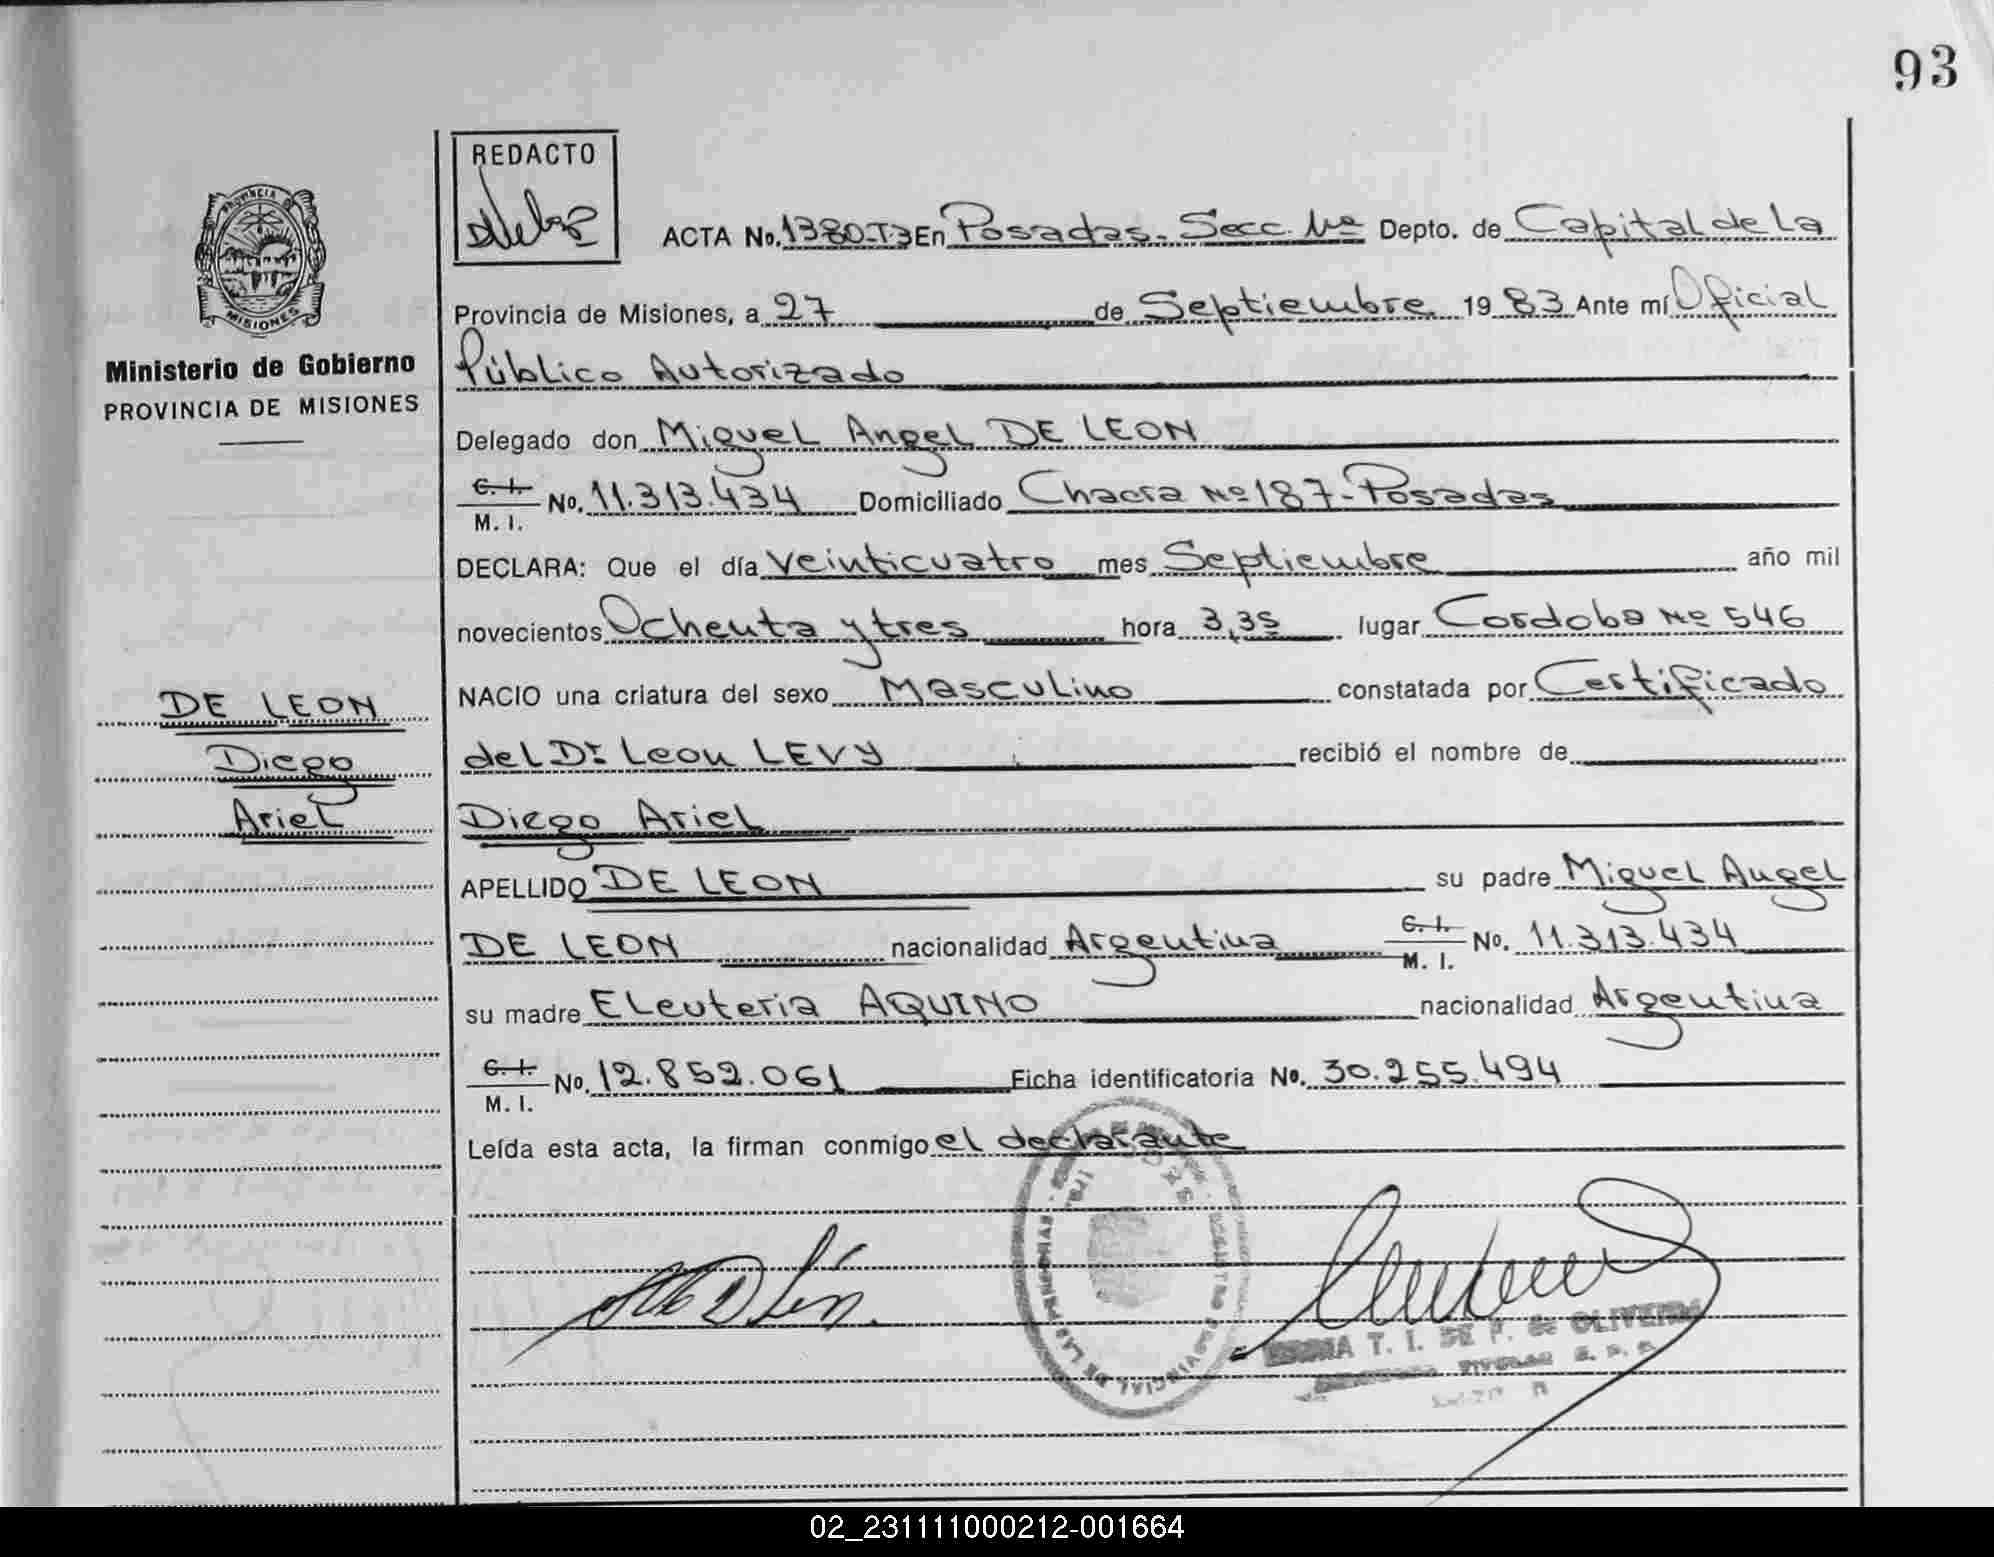 93
REDACTO
ACTA No. 1380-T3 En Posadas - Secc. 1ra Depto. de Capital de La
Provincia de Misiones, a 27 de Septiembre 1983 Ante mí Oficial
Público Autorizado
Delegado don Miguel Angel DE LEON
C. I. M. I. No. 11.313.434 Domiciliado Chacra Nº 187 - Posadas
DECLARA: Que el día Veinticuatro mes Septiembre año mil
novecientos Ochenta y tres hora 3,35 lugar Cordoba Nº 546
NACIO una criatura del sexo Masculino constatada por Certificado
del Dr. Leon LEVY recibió el nombre de
Diego Ariel
APELLIDO DE LEON su padre Miguel Angel
DE LEON nacionalidad Argentina C. I. M. I. No. 11.313.434
su madre Eleuteria AQUINO nacionalidad Argentina
C. I. M. I. No. 12.852.061 Ficha identificatoria No. 30.255.494
Leída esta acta, la firman conmigo el declarante
PROVINCIA DE MISIONES
Ministerio de Gobierno
PROVINCIA DE MISIONES
DE LEON
Diego
Ariel
PROVINCIAL DE LAS PERSONAS
T. I. DE P. de OLIVEIRA
02_231111000212-001664